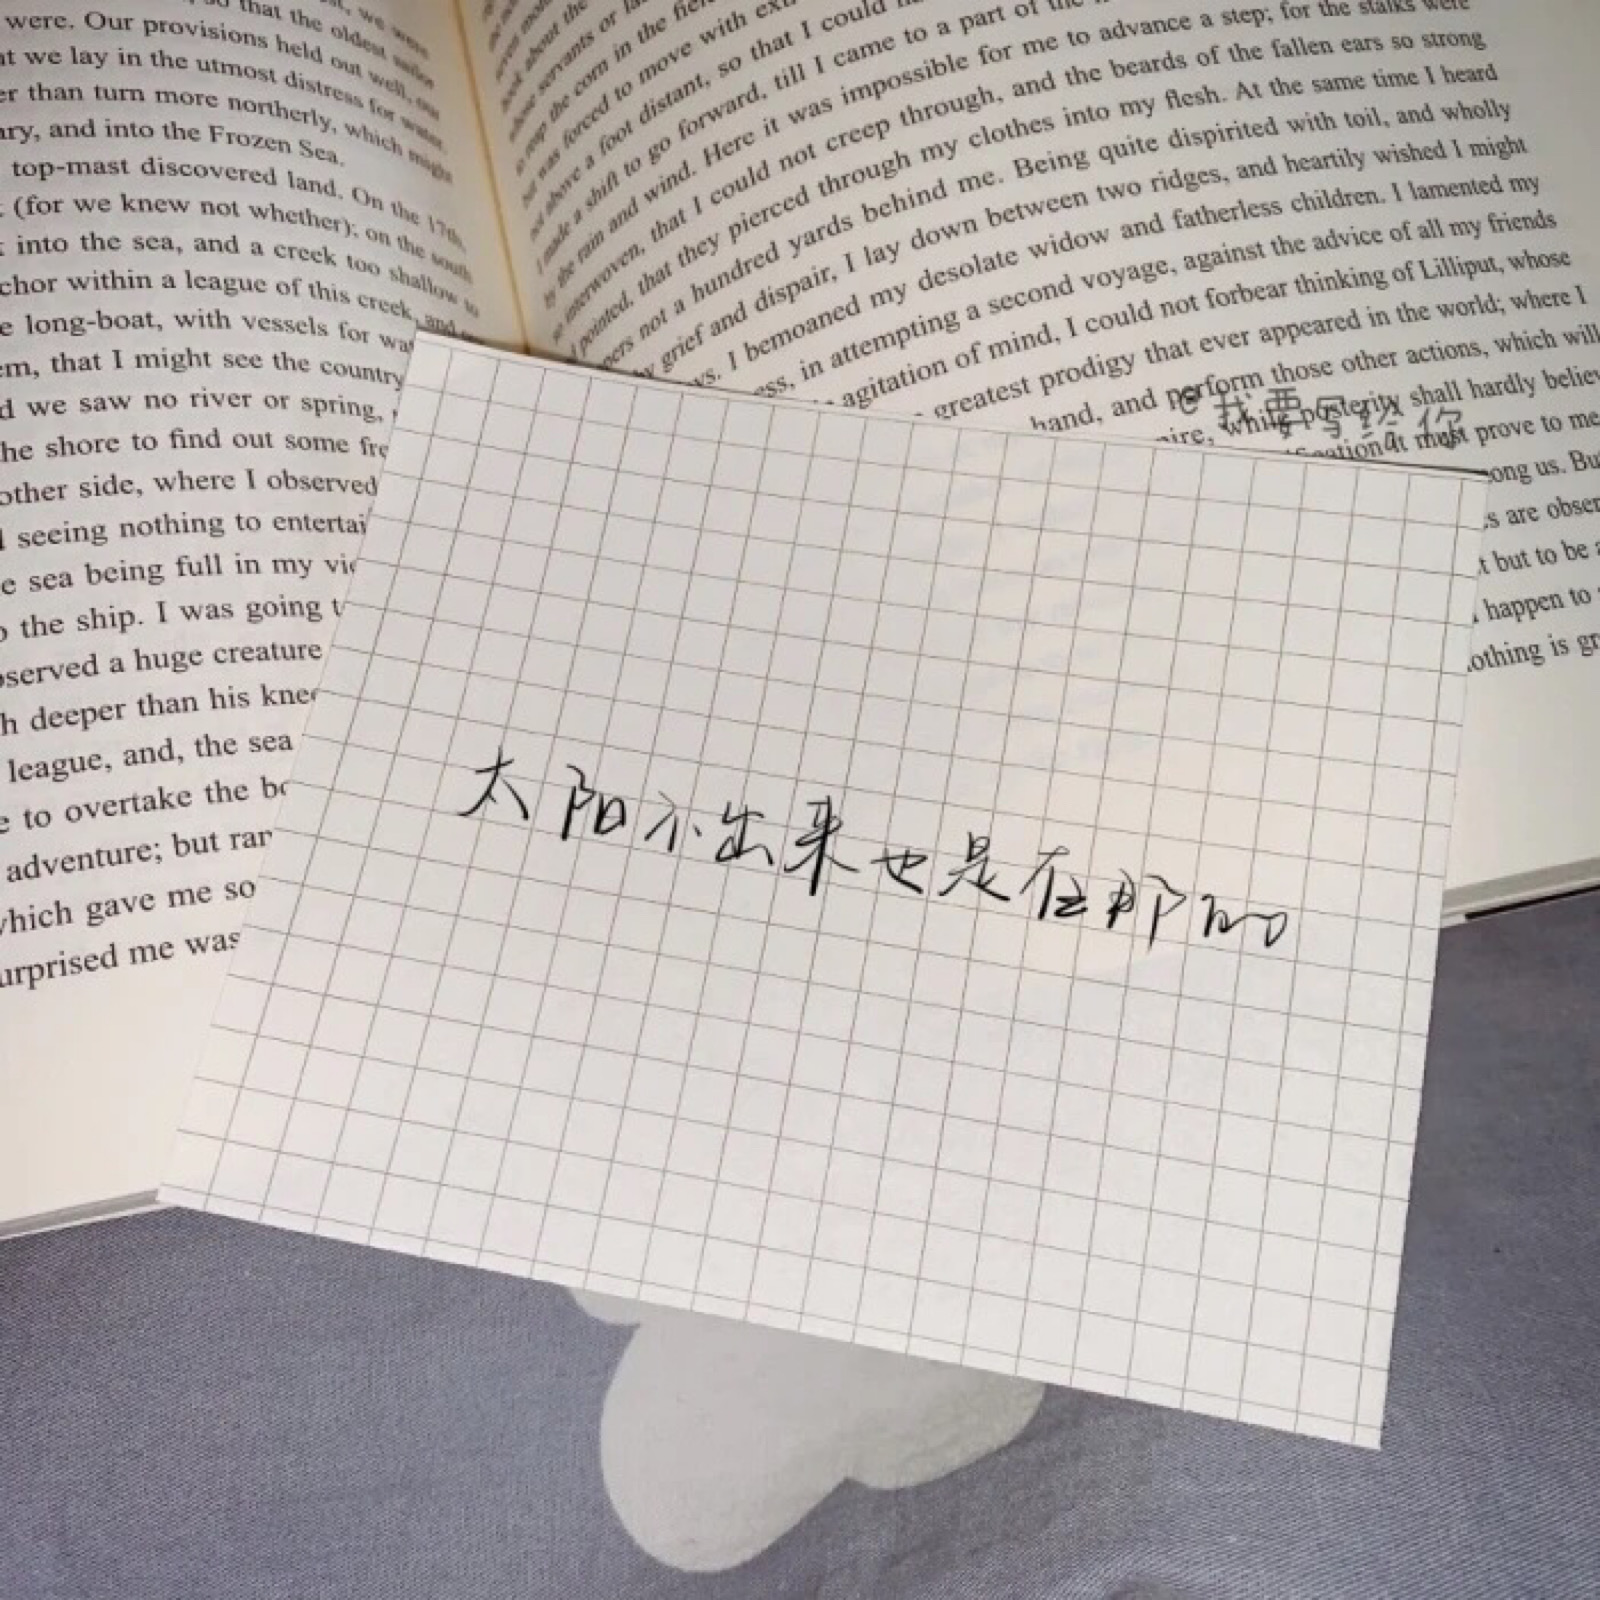 were. Our provisions held out well, our
at we lay in the utmost distress for water.
er than turn more northerly, which might
ary, and into the Frozen Sea.
top-mast discovered land. On the 17th,
(for we knew not whether); on the south
into the sea, and a creek too shallow to
chor within a league of this creek, and
e long-boat, with vessels for wa
em, that I might see the country
d we saw no river or spring,
he shore to find out some fre
other side, where I observed
seeing nothing to entertai
e sea being full in my vie
o the ship. I was going t
bserved a huge creature
h deeper than his knee
league, and, the sea
e to overtake the bo
adventure; but ran
which gave me so
urprised me was
was forced to move with ex
not above a foot distant, so that I could
made a shift to go forward, till I came to a part of the
by the rain and wind. Here it was impossible for me to advance a step; for the stalks were
so interwoven, that I could not creep through, and the beards of the fallen ears so strong
pointed, that they pierced through my clothes into my flesh. At the same time I heard
pers not a hundred yards behind me. Being quite dispirited with toil, and wholly
grief and despair, I lay down between two ridges, and heartily wished I might
ys. I bemoaned my desolate widow and fatherless children. I lamented my
ess, in attempting a second voyage, against the advice of all my friends
agitation of mind, I could not forbear thinking of Lilliput, whose
greatest prodigy that ever appeared in the world; where I
hand, and perform those other actions, which will
ire, while posterity shall hardly believe
it must prove to me
ong us. But
s are obser
t but to be a
happen to
othing is gr
@我要写给你
太阳不出来也是在那的